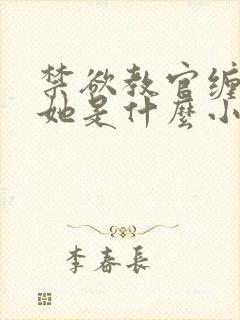 禁欲教官缠
她是什麼小
李春長